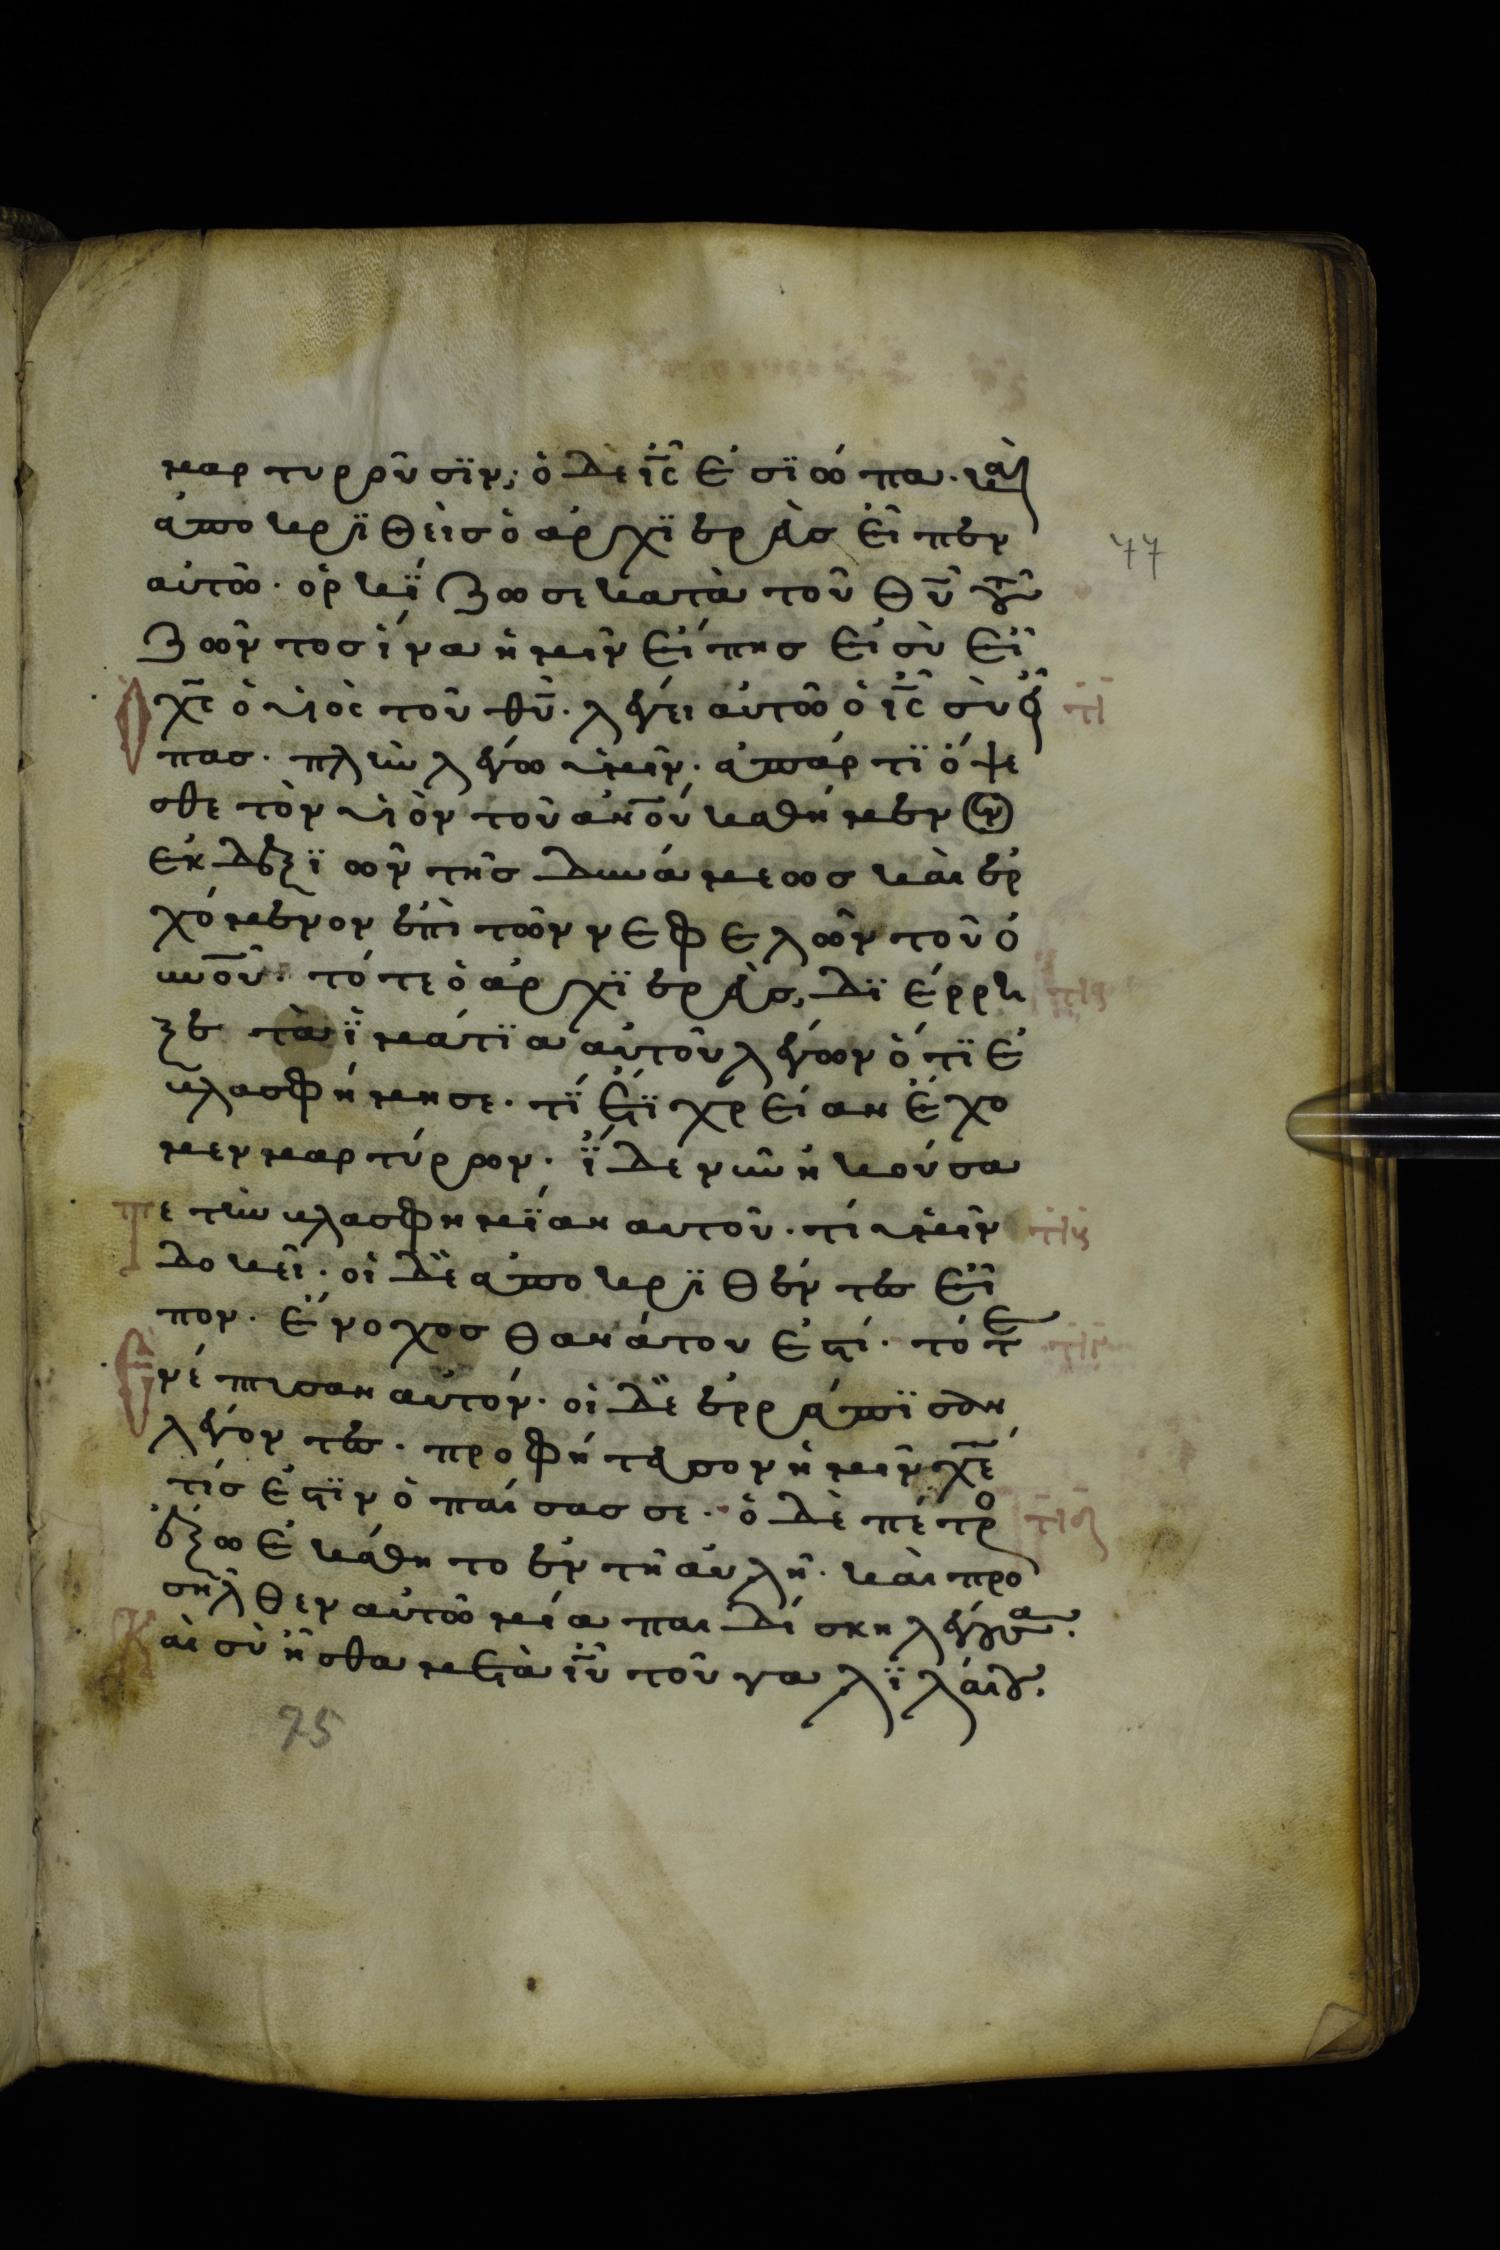 μαρτυροῦσϊν; ὁ δὲ ις̅ ἐσϊώπα· καὶ
ἀποκρϊθεὶς ὁ ἀρχϊερεὺς εἶπεν
αὐτῶ· ὁρκΐζω σε κατὰ τοῦ θυ̅ τοῦ
ζῶντος ἵνα ἡμῖν εἴπης εἰ σὺ εἶ
χς̅ ὁ υἱὸς τοῦ θυ̅· λέγει αὐτῶ ὁ ις̅ σὺ εἶ
πι
πας· πλὴν λέγω ὑμῖν· ἀπάρτϊ ὄψε
σθε τὸν υἱὸν τοῦ ἀνο̅υ καθήμενον
ἐκ δεξϊῶν τῆς δυνάμεως καὶ ἐρ
χόμενον ἐπὶ τῶν νεφελῶν τοῦ ὀ
υνο̅ῦ· τότε ὁ ἀρχϊερεὺς, δϊέρρη
ξε τὰ ϊμάτϊα αὐτοῦ λέγων ὅτϊ ἐ
βλασφήμησε· τΐ ἔτϊ χρείαν ἔχο
μεν μαρτύρων· ΐδε νῦν ἠκούσα
τε τὴν βλασφημΐαν αυτοῦ· τί ὑμῖν
δοκεῖ· οἱ δὲ ἀποκρϊθέντες εἶ
πον· ἔνοχος θανάτου ἐστί· τότε
νέπτυσαν αὐτόν· οἱ δὲ ἐρράπϊσαν
λέγοντες· προφήτευσον ἡμῖν χε̅
τίς ἐστϊν ὁ παίσας σε· ὁ δὲ πέτρο
ἔξω ἐκάθητο ἐν τῆ αὐλῆ· καὶ προ
σῆλθεν αὐτῶ μία παιδίσκη λέγουσα·
Καὶ σὺ ἦσθα μετὰ ιυ̅ τοῦ γαλϊλαίου.
77
75